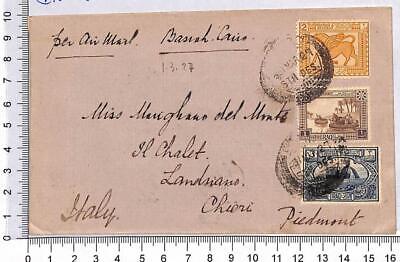 per Air Mail. Basrah-Cairo
1.3.27
Miss Manghano del Monte
Il Chalet.
Landsiano.
Chieri
Italy. Piedmont
IRAQ
0 1 2 3 4 5 6 7 8 9 10
0 1 2 3 4 5 6 7 8 9 10 11 12 13 14 15 16